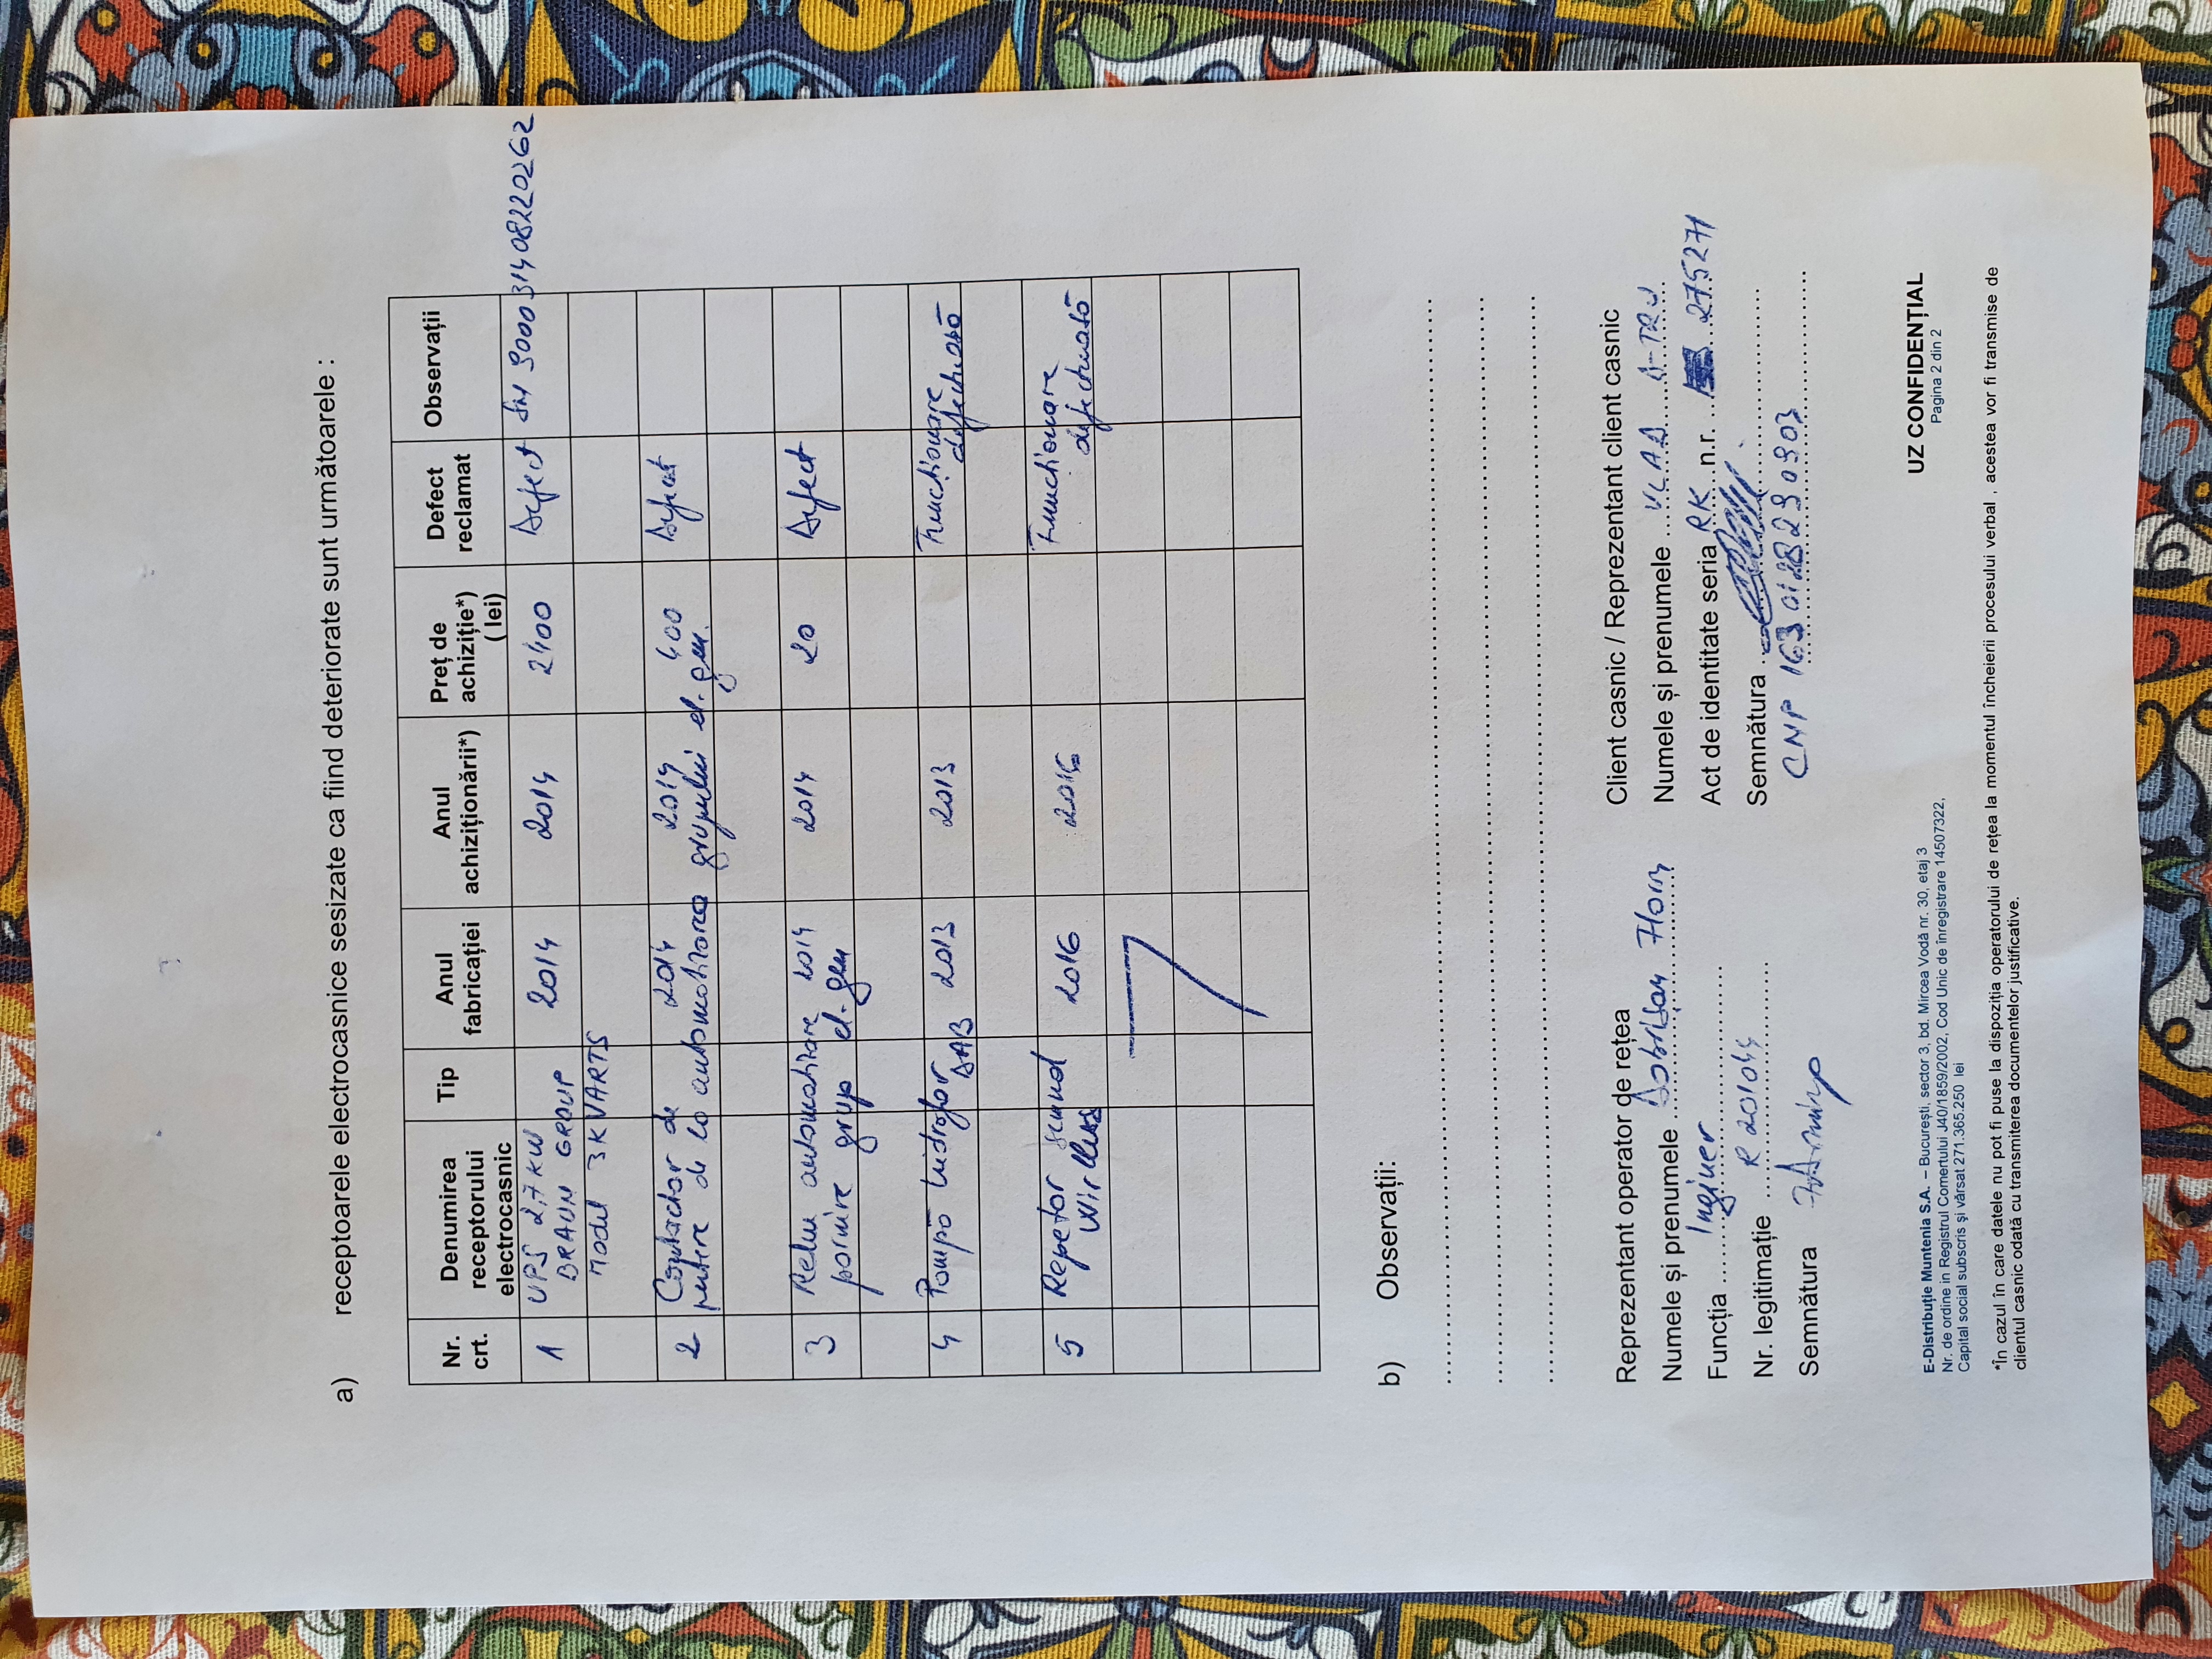 a) receptoarele electrocasnice sesizate ca fiind deteriorate sunt următoarele :
Nr. crt. Denumirea receptorului electrocasnic Tip Anul fabricației Anul achiziționării*) Preț de achiziție*) ( lei) Defect reclamat Observații
1 UPS 2,7 KW 2014 2014 2400 Defect SN 90003140822 0262
BRAUN GROUP
Model 3 KVARTS
2 Contactor de 2014 2014 400 Defect
putere de la automatizarea grupului el. gen.
3 Releu automatizare 2014 2014 20 Defect
pornire grup el. gen
4 Pompă hidrofor DAB 2013 2013 Funcționare defectuasă
5 Repetor semnal 2016 2016 Funcționare defectuasă
Wirless
b) Observații:
Reprezentant operator de rețea
Numele și prenumele Dobrițan
Funcția Inginer
Nr. legitimație
Semnătura
Client casnic / Reprezentant client casnic
Numele și prenumele VLAD
Act de identitate seria RK n.r. 275271
Semnătura
CNP
E-Distribuție Muntenia S.A. – București, sector 3, bd. Mircea Vodă nr. 30, etaj 3
Nr. de ordine in Registrul Comertului J40/1859/2002, Cod Unic de înregistrare 14507322,
Capital social subscris și vărsat 271.365.250 lei
UZ CONFIDENȚIAL
Pagina 2 din 2
*În cazul în care datele nu pot fi puse la dispoziția operatorului de rețea la momentul încheierii procesului verbal , acestea vor fi transmise de
clientul casnic odată cu transmiterea documentelor justificative.